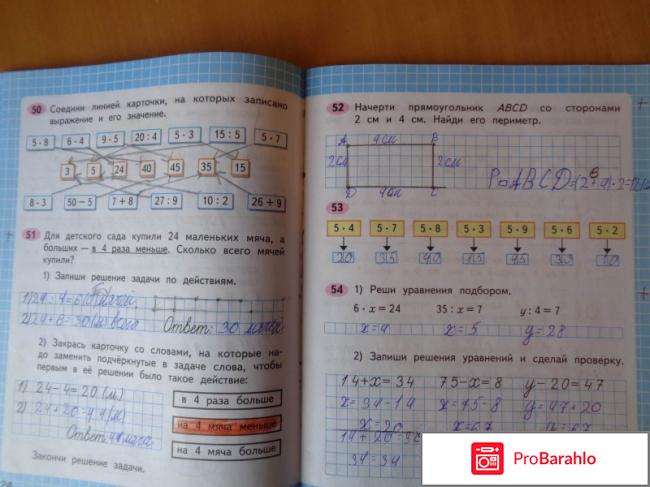 50 Соедини линией карточки, на которых записано
выражение и его значение.
5·8 6·4 9·5 20:4 5·3 15:5 5·7
3 5 24 40 45 35 15
8·3 50−5 7+8 27:9 10:2 26+9
51 Для детского сада купили 24 маленьких мяча, а
больших — в 4 раза меньше. Сколько всего мячей
купили?
1) Запиши решение задачи по действиям.
1) 24 : 4 = 6
2) 24+6=30 (м)
Ответ: 30 мячей
2) Закрась карточку со словами, на которые на-
до заменить подчёркнутые в задаче слова, чтобы
первым в её решении было такое действие:
1) 24−4=20 (м)
в 4 раза больше
2) 24+20=44 (м)
на 4 мяча меньше
Ответ: 44 мяча
на 4 мяча больше
Закончи решение задачи.
52 Начерти прямоугольник ABCD со сторонами
2 см и 4 см. Найди его периметр.
A 4см B
2см 2см
D 4см C
53
5·4 5·7 5·8 5·3 5·9 5·6 5·2
20 35 40 15 45 30 10
54 1) Реши уравнения подбором.
6·x=24 35:x=7 y:4=7
x=4 x=5 y=28
2) Запиши решения уравнений и сделай проверку.
14+x=34 75−x=8 y−20=47
x=34−14 x=75−8 y=47+20
x=20 x=67
34=34
ProBarahlo